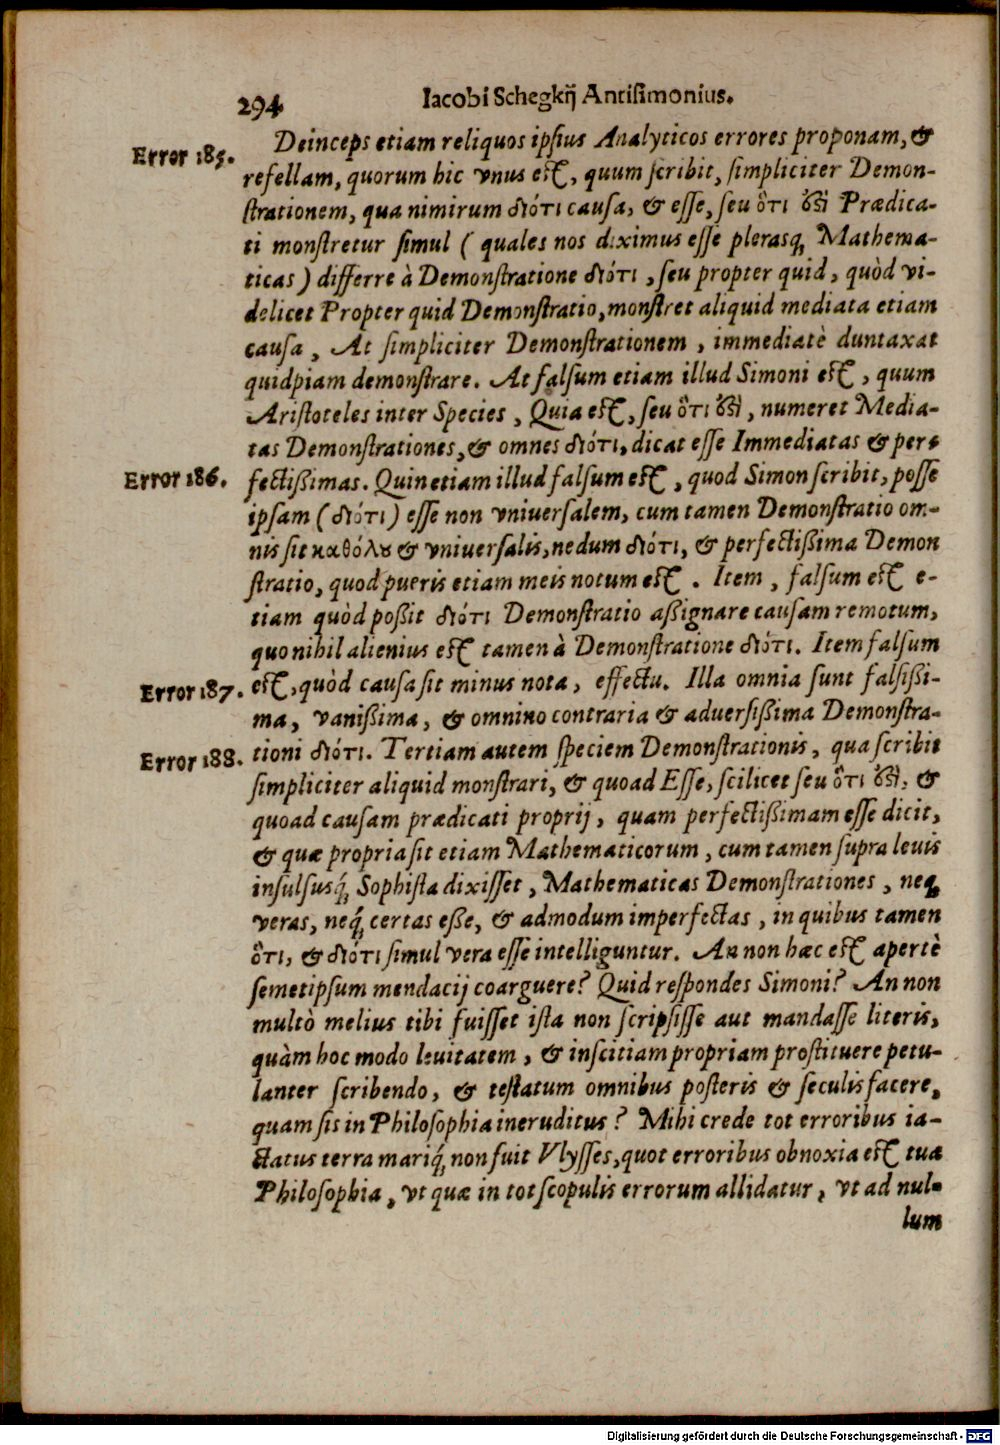 294
Iacobi Schegkij Antisimonius.
Deinceps etiam reliquos ipsius Analyticos errores proponam, &
Error 185.
refellam, quorum hic vnus est, quum scribit, simpliciter Demon-
strationem, qua nimirum διότι causa, & esse, seu ὅτι ἐστὶ Prædica-
ti monstretur simul ( quales nos diximus esse plerasq́; Mathema-
ticas ) differre à Demonstratione διότι, seu propter quid, quòd vi-
delicet Propter quid Demonstratio, monstret aliquid mediata etiam
causa, At simpliciter Demonstrationem, immediatè duntaxat
quidpiam demonstrare. At falsum etiam illud Simoni est, quum
Aristoteles inter Species, Quia est, seu ὅτι ἐστὶ, numeret Media-
tas Demonstrationes, & omnes διότι, dicat esse Immediatas & per-
Error 186.
fectißimas. Quin etiam illud falsum est, quod Simon scribit, posse
ipsam (διότι) esse non vniuersalem, cum tamen Demonstratio om-
nis sit καθόλου & vniuersalis, nedum διότι, & perfectißima Demon
stratio, quod pueris etiam meis notum est. Item, falsum est e-
tiam quòd poßit διότι Demonstratio aßignare causam remotum,
quo nihil alienius est tamen à Demonstratione διότι. Item falsum
Error 187.
est, quòd causa sit minus nota, effectu. Illa omnia sunt falsißi-
ma, vanißima, & omnino contraria & aduersißima Demonstra-
Error 188.
tioni διότι. Tertiam autem speciem Demonstrationis, qua scribit
simpliciter aliquid monstrari, & quoad Esse, scilicet seu ὅτι ἐστὶ, &
quoad causam prædicati proprij, quam perfectißimam esse dicit,
& quæ propria sit etiam Mathematicorum, cum tamen supra leuis
insulsusq́; Sophista dixisset, Mathematicas Demonstrationes, neq́;
veras, neq́; certas eße, & admodum imperfectas, in quibus tamen
ὅτι, & διότι simul vera esse intelliguntur. An non hæc est apertè
semetipsum mendacij coarguere? Quid respondes Simoni? An non
multò melius tibi fuisset ista non scripsisse aut mandasse literis,
quàm hoc modo leuitatem, & inscitiam propriam prostituere petu-
lanter scribendo, & testatum omnibus posteris & seculis facere,
quam sis in Philosophia ineruditus? Mihi crede tot erroribus ia-
ctatus terra mariq́; non fuit Vlysses, quot erroribus obnoxia est tua
Philosophia, vt quæ in tot scopulis errorum allidatur, vt ad nul-
lum
Digitalisierung gefördert durch die Deutsche Forschungsgemeinschaft - DFG